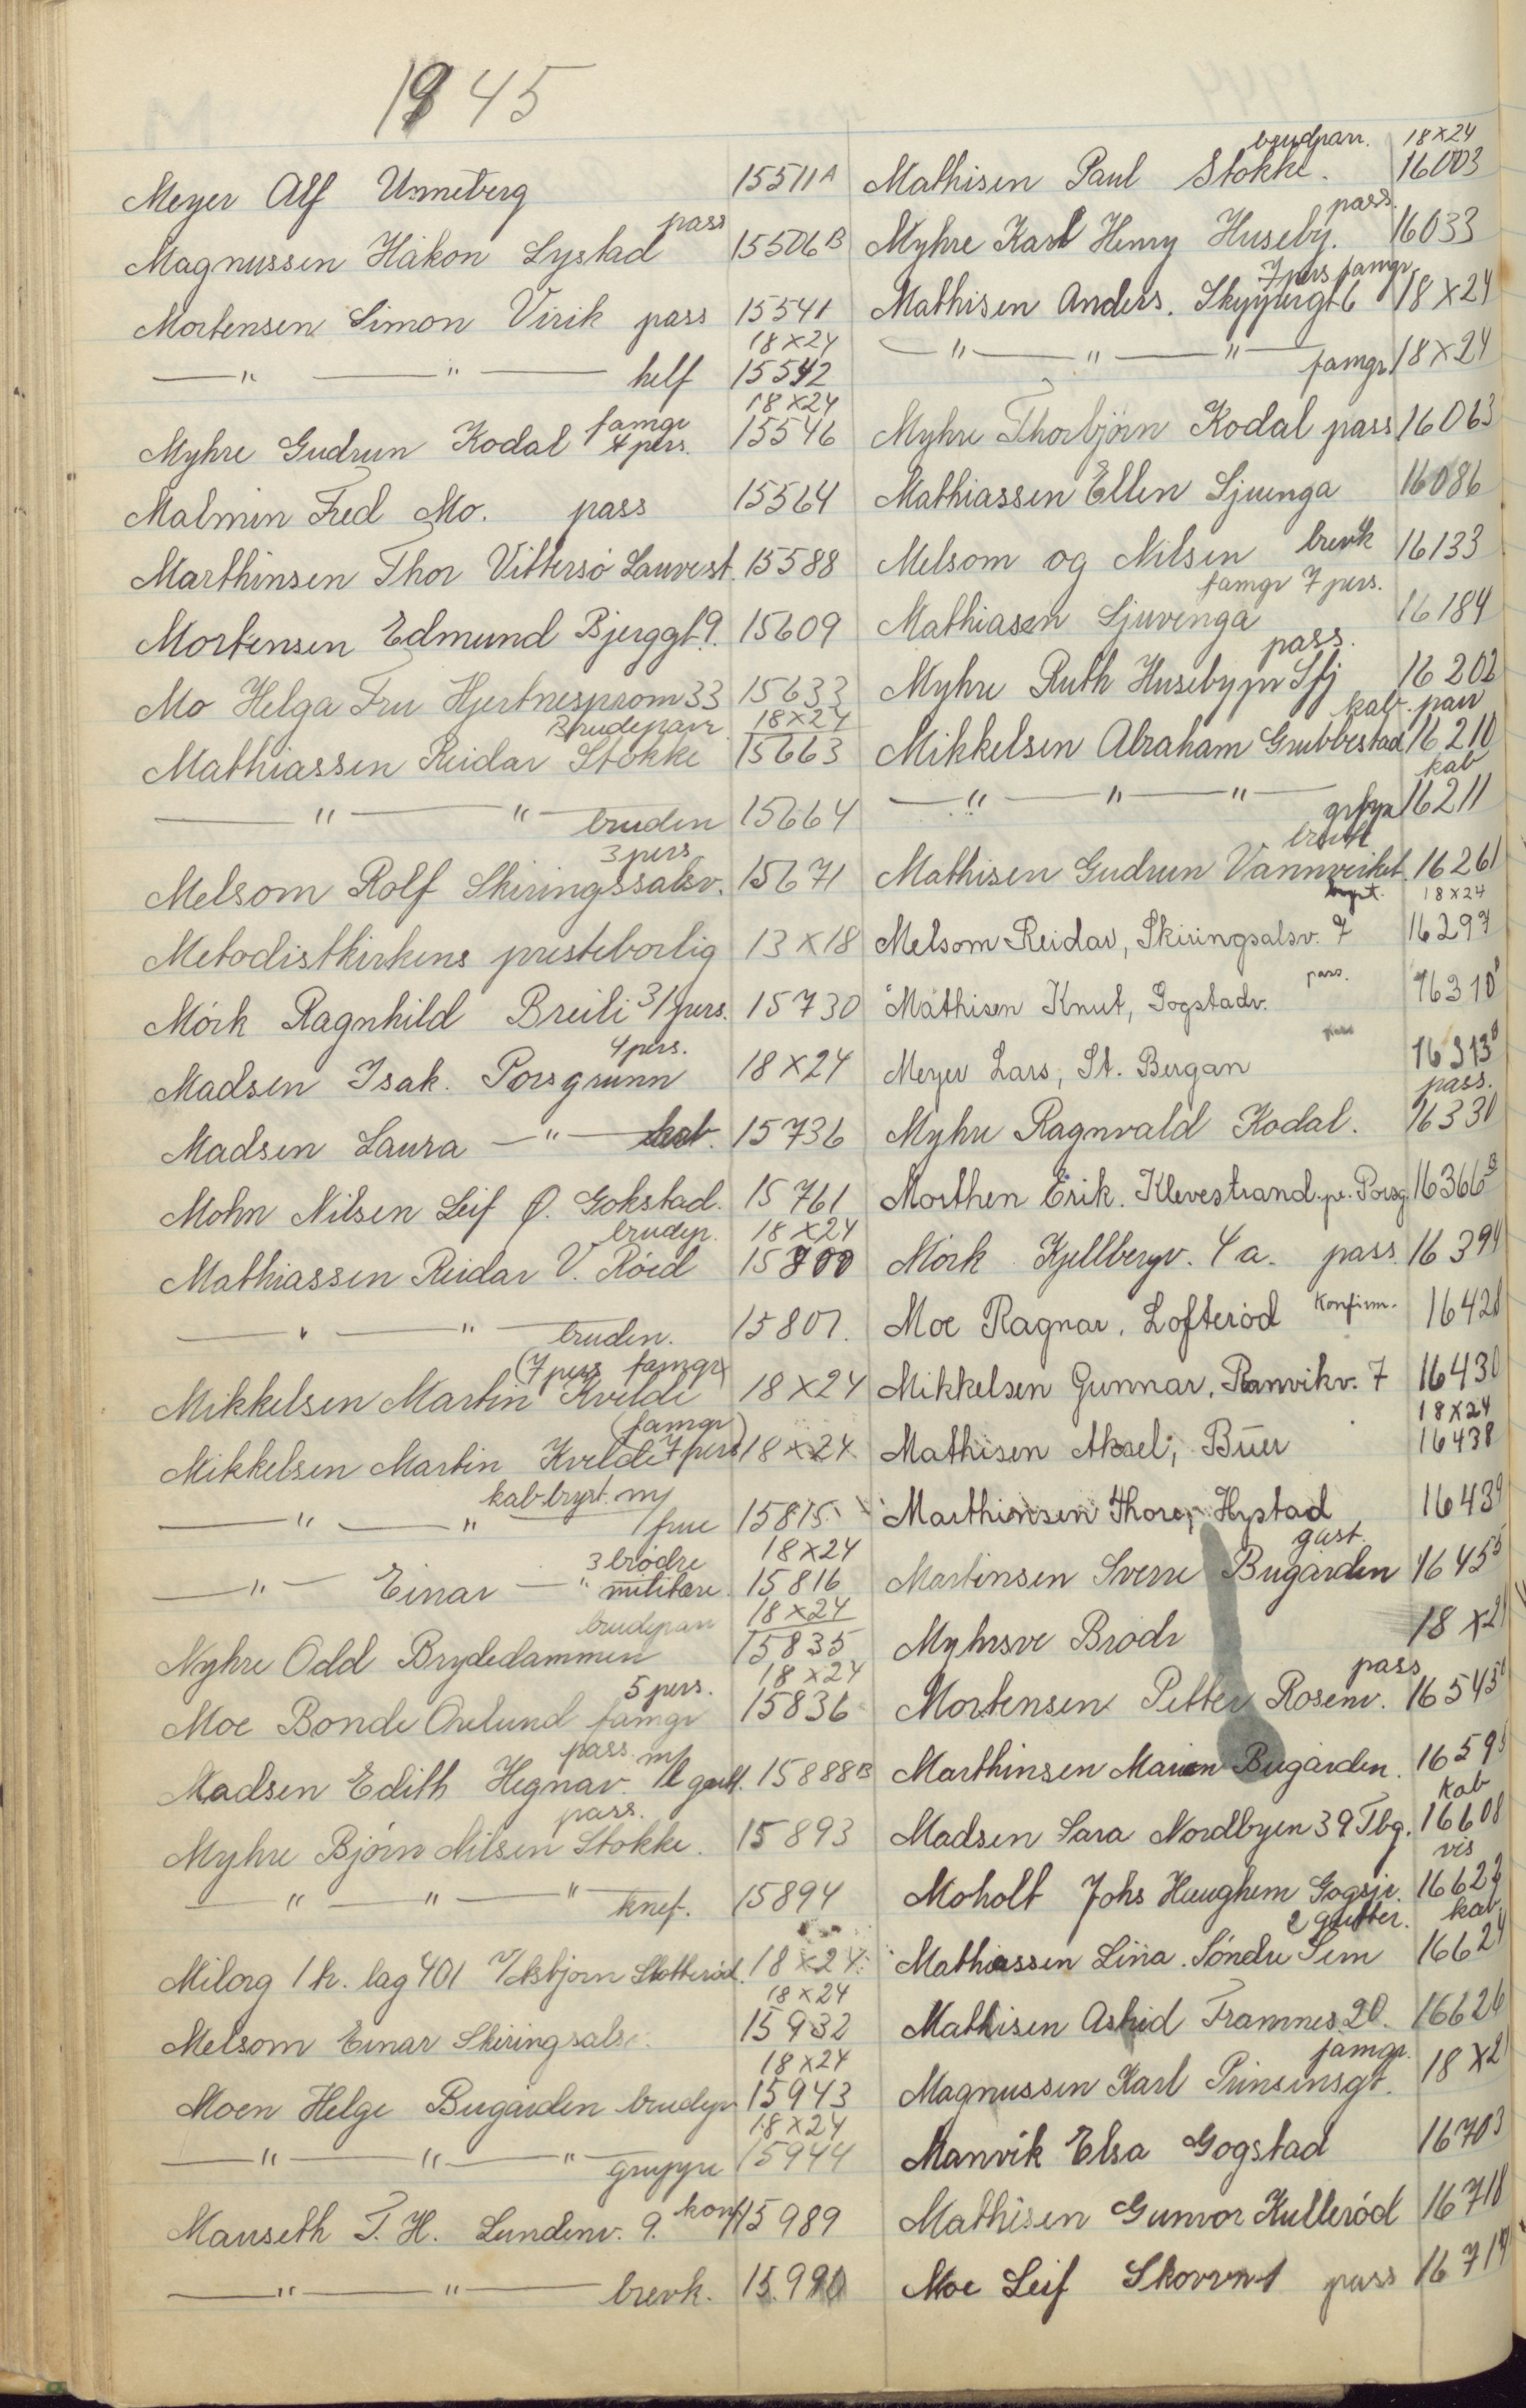 1945
Meyer Alf Unneberg 15511A
pass
Magnussen Håkon Lystad 15506B
Mortensen Simon Virik pass 15541
18×24
—"— —"— helf 15542
18×24
famgr
Myhre Gudrun Kodal 4 pers. 15546
Malmin Fred Mo. pass 15564
Marthinsen Thor Vittersö Lauvest. 15588
Mortensen Edmund Bjerggt. 9. 15609
Mo Helga Fru Hjertnesprom 33 15633
Brudepar 18×24
Mathiassen Reidar Stokke 15663
—"— —"— bruden 15664
3 pers
Melsom Rolf Skiringssalsv. 15671
Metodistkirkens prestebolig 13×18
Mörk Ragnhild Breili 3/ pers. 15730
4 pers.
Madsen Isak. Porsgrunn 18×24
Madsen Laura —"— kab. 15736
Mohn Nilsen Leif Ø. Gokstad. 15761
brudep. 18×24
Mathiassen Reidar V. Röed 15800
—"— —"— bruden. 15801.
(7 pers famgr)
Mikkelsen Martin Kvelde 18×24
(famgr)
Mikkelsen Martin Kvelde 7 pers 18×24
kab bryst. m/
—"— —"— frue 15815
3 brödre 18×24
—"— Einar —"— militære. 15816
brudepar 18×24
Myhre Odd Brydedammen 15835
5 pers. 18×24
Moe Bonde Oxelund famgr 15836
pass. m/
Madsen Edith Hegnav. 15888B
pass.
Myhre Bjørn Nilsen Stokke. 15893
—"— —"— —"— knef. 15894
Milorg 1 k. lag 401 v/Asbjørn 18×24
18×24
Melsom Einar Skiringsalsv. 15932
18×24
Moen Helge Bugården brudep 15943
18×24
—"— —"— —"— gruppe 15944
Manseth T. H. Lundenv. 9. konf 15989
—"— —"— brevk. 15990
brudpar. 18×24
Mathisen Paul Stokke. 16003
pass.
Myhre Karl Henry Huseby. 16033
7 pers famgr.
Mathisen Anders. Skyttergt 6 18×24
—"— —"— —"— famgr 18×24
Myhre Thorbjörn Kodal pass 16063
Mathiassen Ellen Ljuenga 16086
Melsom og Nilsen brevk 16133
famgr 7 pers.
Mathiasen Ljuvenga 16184
pass.
Myhre Ruth Huseby pr Sfj 16202
kab. par
Mikkelsen Abraham Grubbestad 16210
kab
—"— —"— —"— 16211
brevk
Mathisen Gudrun Vannverket. 16261
bryst. 18×24
Melsom Reidar, Skiringsalsv. 7 16297
pass.
Mathisen Knut, Gogstadv. 16310
pass
Meyer Lars, St. Bergan 16313B
pass.
Myhre Ragnvald Kodal. 16330
Morthen Erik. Klevestrand. pr. Porsg. 16366B
Mörk Kjellbergv. 4 a. pass. 16394
Moe Ragnar, Lofteröd Konfirm. 16428
Mikkelsen Gunnar, Ranvikv. 7 16430
18×24
Mathisen Aksel, Buer 16438
Marthinsen Thore, Hystad 16439
gust.
Martinsen Sverre Bugården 16455
Myhrsve Brödr 18×24
pass
Mortensen Petter Rosenv. 16545
Marthinsen Marien Bugården. 1659
Kab
Madsen Sara Nordbyen 39 Tbg. 16608
vis
Moholt Johs Haughem Gogsjö. 16623
2 gutter. kab.
Mathiassen Lina. Söndre Sem 16624
Mathisen Astrid Framnes 20. 16626
famgr.
Magnussen Karl Prinsensgt. 18×24
Manvik Elsa Gogstad 16703
Mathisen Gunvor Kulleröd 16718
Moe Leif Skovv 1 pass 16719